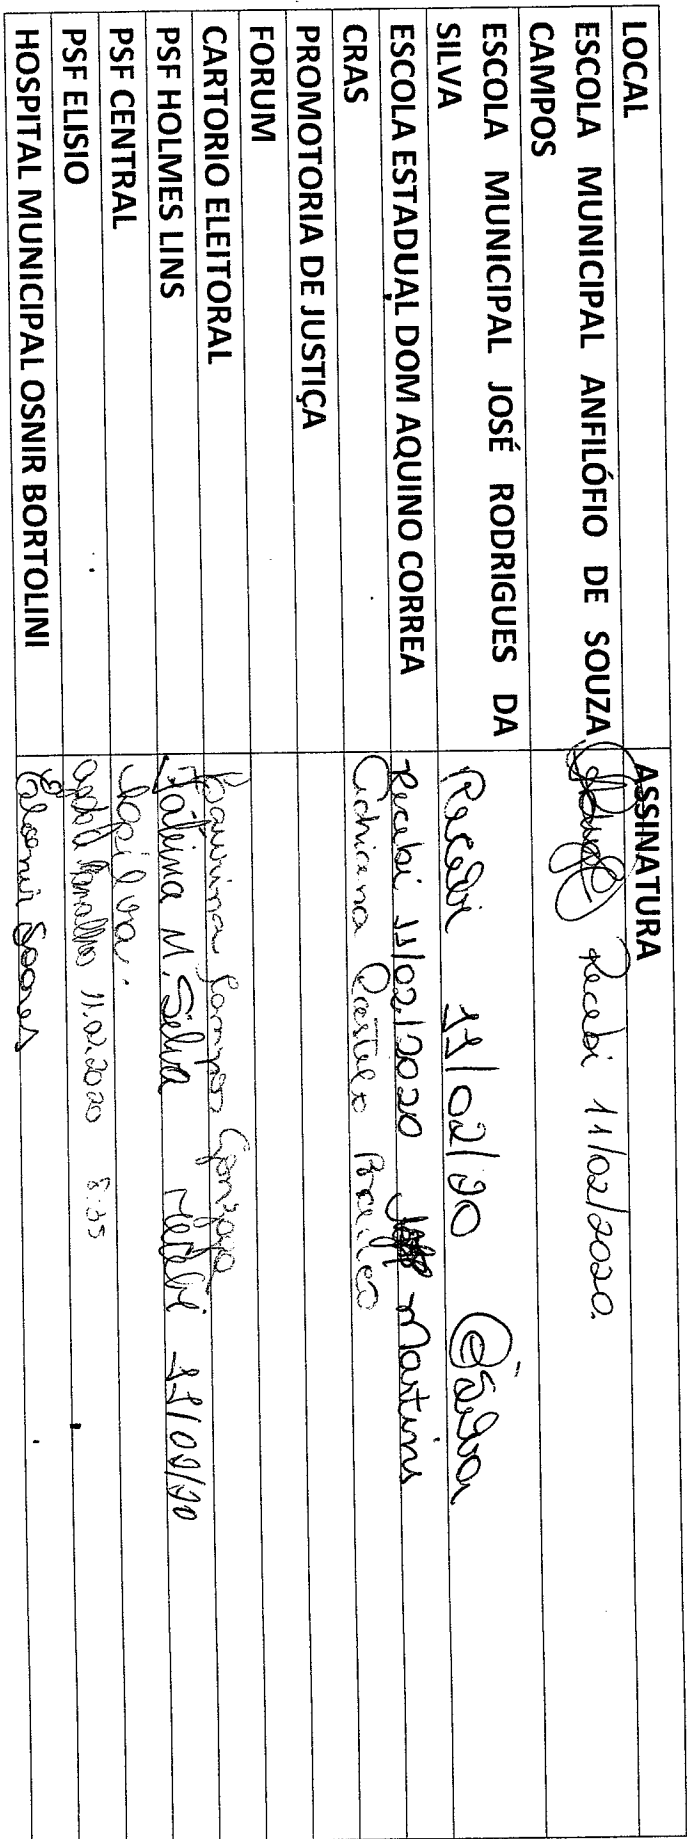 LOCAL ASSINATURA
ESCOLA MUNICIPAL ANFILÓFIO DE SOUZA Recebi 11/02/2020.
CAMPOS
ESCOLA MUNICIPAL JOSÉ RODRIGUES DA Recebi 11/02/20 Silva
SILVA
ESCOLA ESTADUAL DOM AQUINO CORREA Recebi 11/02/2020 Martins
CRAS
PROMOTORIA DE JUSTIÇA
FORUM
CARTORIO ELEITORAL
PSF HOLMES LINS M. Silva recebi 11/02/20
PSF CENTRAL
PSF ELISIO 11.02.2020
HOSPITAL MUNICIPAL OSNIR BORTOLINI Soares